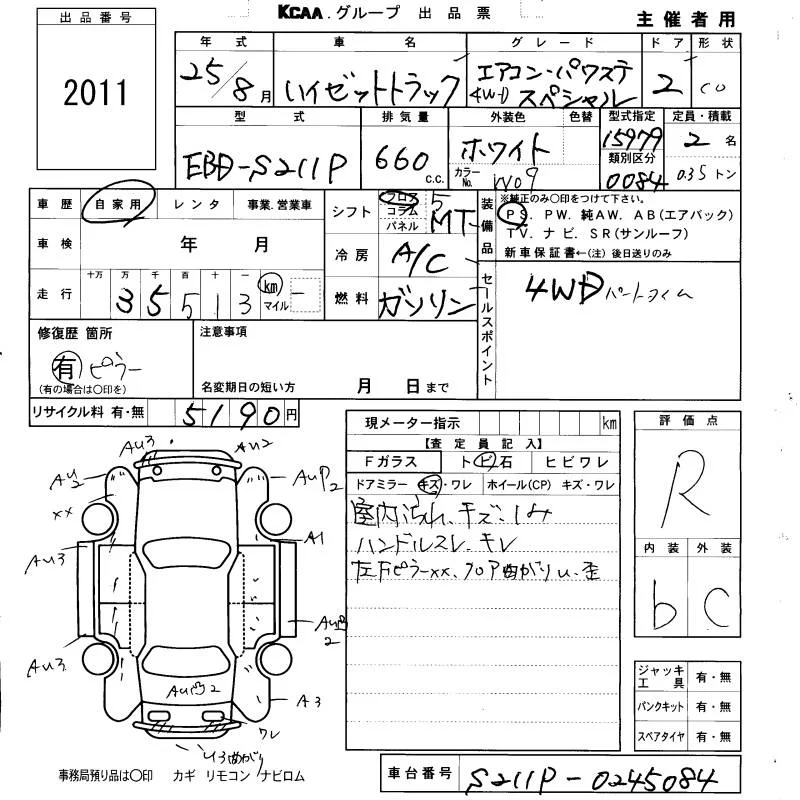 KCAA.グループ 出品票
主催者用
出品番号
2011
年式 車名 グレード ドア 形状
25/8月 ハイゼットトラック エアコン・パワステ 4WD スペシャル 2 CO
型式 排気量 外装色 色替 型式指定 定員・積載
EBD-S211P 660 C.C. ホワイト カラーNo. W09 15979 2名
類別区分
0084 0.35トン
車歴 自家用 レンタ 事業.営業車
シフト フロア コラム パネル 5 MT
装備品 ※純正のみ〇印をつけて下さい。
PS. PW. 純AW. AB(エアバック)
TV. ナビ. SR(サンルーフ)
新車保証書←(注) 後日送りのみ
車検 年 月
冷房 A/C
走行 十万 万 千 百 十 一
3 5 5 1 3 km マイル
燃料 ガソリン
セールスポイント 4WD パートタイム
修復歴 箇所
有 ピラー
(有の場合は〇印を)
注意事項
名変期日の短い方 月 日まで
リサイクル料 有・無 5190円
現メーター指示 km
【査定員記入】
Fガラス ト ビ 石 ヒビワレ
ドアミラー キズ・ワレ ホイール(CP) キズ・ワレ
室内汚れ、キズ・シミ
ハンドルスレ、キレ
左下ピラーxx、フロア曲がりu、歪
評価点
R
内装 外装
b C
ジャッキ工具 有・無
パンクキット 有・無
スペアタイヤ 有・無
AU3 AU2
AU2 AUP2
xx
A1
AU3
2
AU3
A3
2
ワレ
U3曲がり
事務局預り品は〇印 カギ リモコン ナビロム
車台番号 S211P-0245084